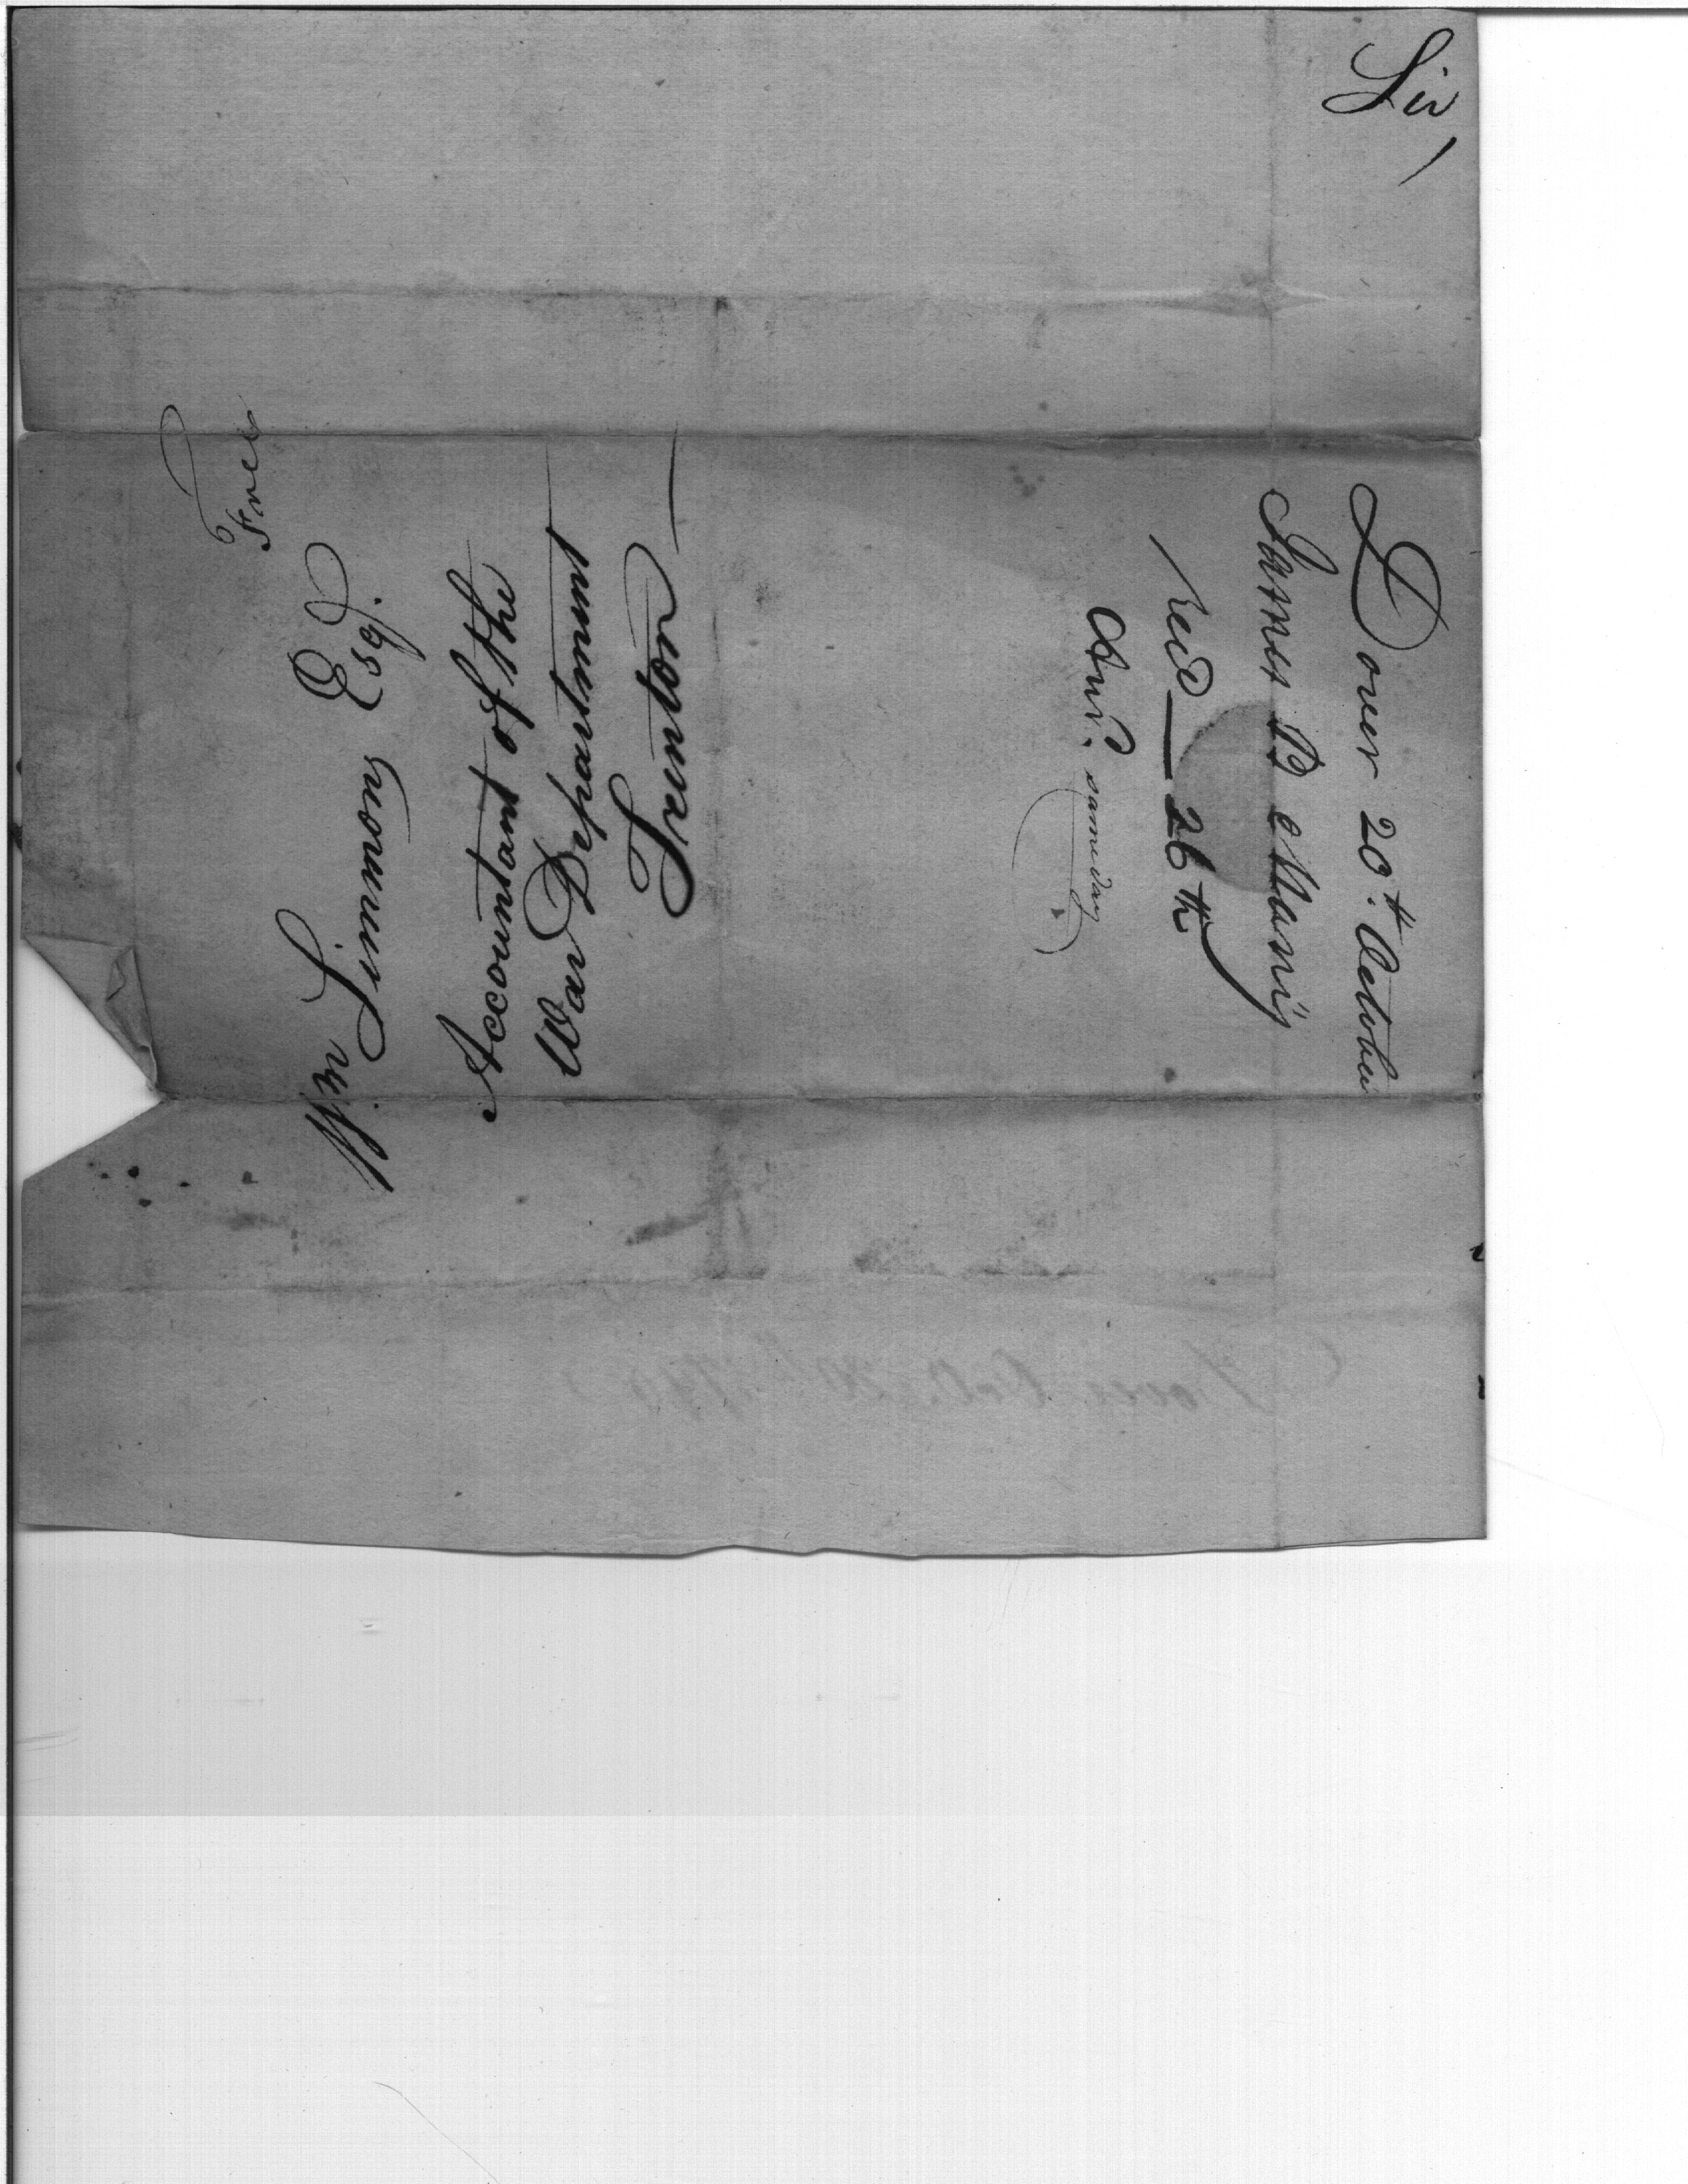 Sir,
Dover 20th. October
James B Many
Recd 26th
Ansd. same day
Free
Wm Simmons Esq.
Accountant of the
War Department
Trenton